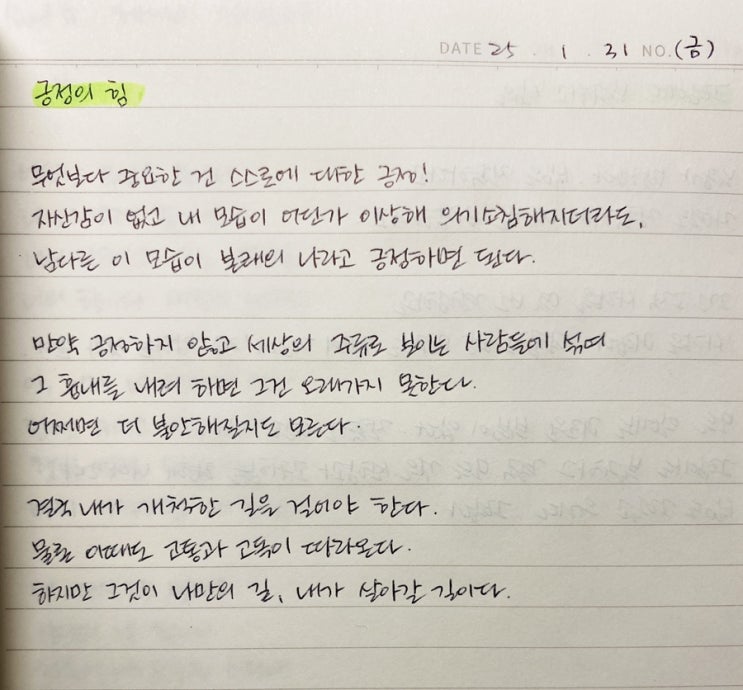 DATE 25 . 1 . 31 NO.(금)
긍정의 힘
무엇보다 중요한 건 스스로에 대한 긍정!
자신감이 없고 내 모습이 어딘가 이상해 의기소침해지더라도,
남다른 이 모습이 본래의 나라고 긍정하면 된다.
만약 긍정하지 않고 세상의 주류로 보이는 사람들에 섞여
그 흉내를 내려 하면 그건 오래가지 못한다.
어쩌면 더 불안해질지도 모른다.
결국 내가 개척한 길을 걸어야 한다.
물론 이때도 고통과 고독이 따라온다.
하지만 그것이 나만의 길, 내가 살아갈 길이다.